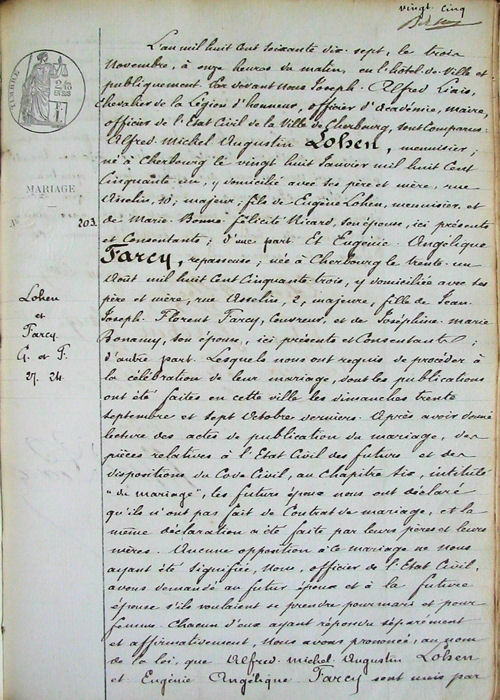 vingt cinq
L'an mil huit cent soixante dix-sept, le trois
Novembre, à onze heures du matin, en l'hôtel-de-Ville et
publiquement. Par devant Nous Joseph-Alfred Liais,
Chevalier de la Légion d'honneur, officier d'Académie, maire,
officier de l'Etat Civil de la Ville de Cherbourg, sont comparus:
Alfred Michel Augustin Lohen, menuisier;
né à Cherbourg le vingt huit Janvier mil huit Cent
Cinquante un, y domicilié avec ses père et mère, rue
Asselin, 10; majeur; fils de Eugène Lohen, menuisier, et
de Marie Bonne Félicité Ricard, son épouse, ici présents
et Consentants; d'une part. Et Eugénie Angélique
Farcy, repasseuse; née à Cherbourg le trente-un
Août mil huit Cent Cinquante-trois, y domiciliée avec ses
père et mère, rue Asselin, 2, majeure, fille de Jean
Joseph Florent Farcy, Couvreur, et de Joséphine Marie
Bonamy, son épouse, ici présents et Consentants;
d'autre part. Lesquels nous ont requis de procéder à
la célébration de leur mariage, dont les publications
ont été faites en cette ville les dimanches trente
septembre et sept Octobre derniers. Après avoir donné
lecture des actes de publication du mariage, des
pièces relatives à l'Etat Civil des futurs et des
dispositions du Code Civil, au Chapitre six, intitulé
"du mariage", les futurs époux nous ont déclaré
qu'ils n'ont pas fait de Contrat de mariage, et la
même déclaration a été faite par leurs pères et leurs
mères. Aucune opposition à ce mariage ne Nous
ayant été signifiée, Nous, officier de l'Etat Civil,
avons demandé au futur époux et à la future
épouse s'ils voulaient se prendre pour mari et pour
femme. Chacun d'eux ayant répondu séparément
et affirmativement, Nous avons prononcé, au nom
de la loi, que Alfred Michel Augustin Lohen
et Eugénie Angélique Farcy sont unis par
MARIAGE
203
Lohen
et
Farcy
G. et F.
27. 24.